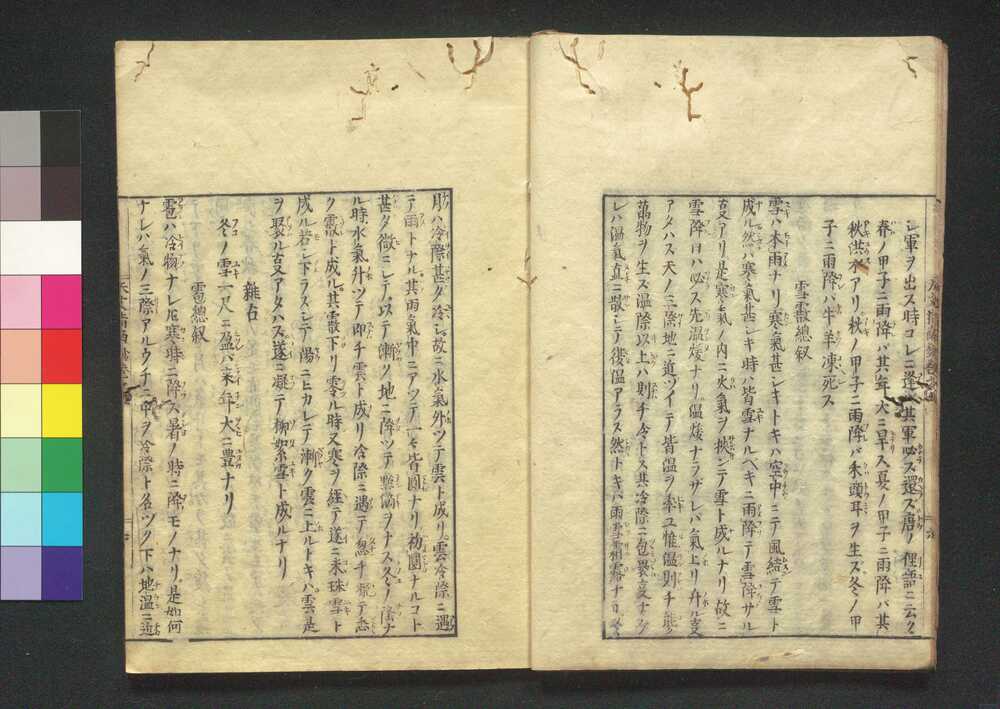 軍ヲ出ス時コレニ逢ハ其軍必ス還ズ唐ノ俚語ニ云ク
春ノ甲子ニ雨降バ其年大ニ旱ス夏ノ甲子ニ雨降バ其
秋洪水アリ秋ノ甲子ニ雨降バ禾頭耳ヲ生ズ冬ノ甲
子ニ雨降バ牛羊凍死ス
雪霰總叙
雪ハ本雨ナリ寒氣甚シキトキハ空中ニテ風結テ雪ト
成ル然バ寒氣甚シキ時ハ皆雪ナルベキニ雨降テ雪降サル
アリ是寒氣ノ内ニ火氣ヲ挾ンデ雪ト成ルナリ故ニ
雪降日ハ必ス先温煖ナリ温煖ナラザレバ氣上リ升ル
アタハス天ノ三際地ニ近ヅイテ皆温ヲ奉ユ惟温則チ能ク
萬物ヲ生ス温際以上ハ則チ冷トス其冷際ニ包
レバ温氣直ニ散シテ復温アラス然トキバ雨雪霜露ナ
月ハ冷際甚タ冷シ故ニ水氣外ツテ雲ト成リ雲冷際ニ遇
テ雨トナル其雨氣中ニアツテ一々皆圓ナリ初圓ナルコト
甚タ微ニシテ以テ漸ク地ニ降ツテ點滴ヲナス冬ノ
ル時水氣外ツテ即チ雲ト成リ冷際ニ遇テ忽チ
ク霰ト成ル其霰下リ零ル時又寒ヲ經テ遂ニ米珠雪ト
成ル若シ下ラスシテ陽ニヒカレテ漸ク雲ニ上ルトキハ雲是
ヲ アタハス遂ニ凝テ柳絮雪ト成ルナリ
雜占
冬ノ雪一尺ニ盈バ來年大ニ豊ナリ
雹總叙
雹ハ冷物ナレ𪜈寒時ニ降ス暑ノ時ニ降モノナリ是如何
ナレバ氣ノ三際アルウチニ中ヲ冷際ト名ツク下ハ地温ニ近